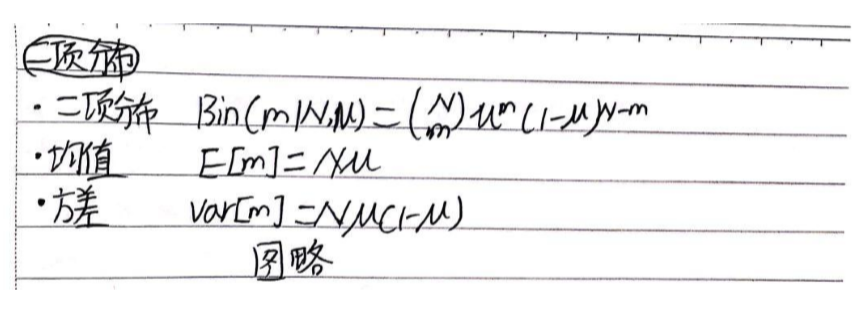 二项分布
· 二项分布 Bin(m|N,μ)=(N m)μ^m(1-μ)^N-m
· 均值 E[m]=Nμ
· 方差 var[m]=Nμ(1-μ)
图略